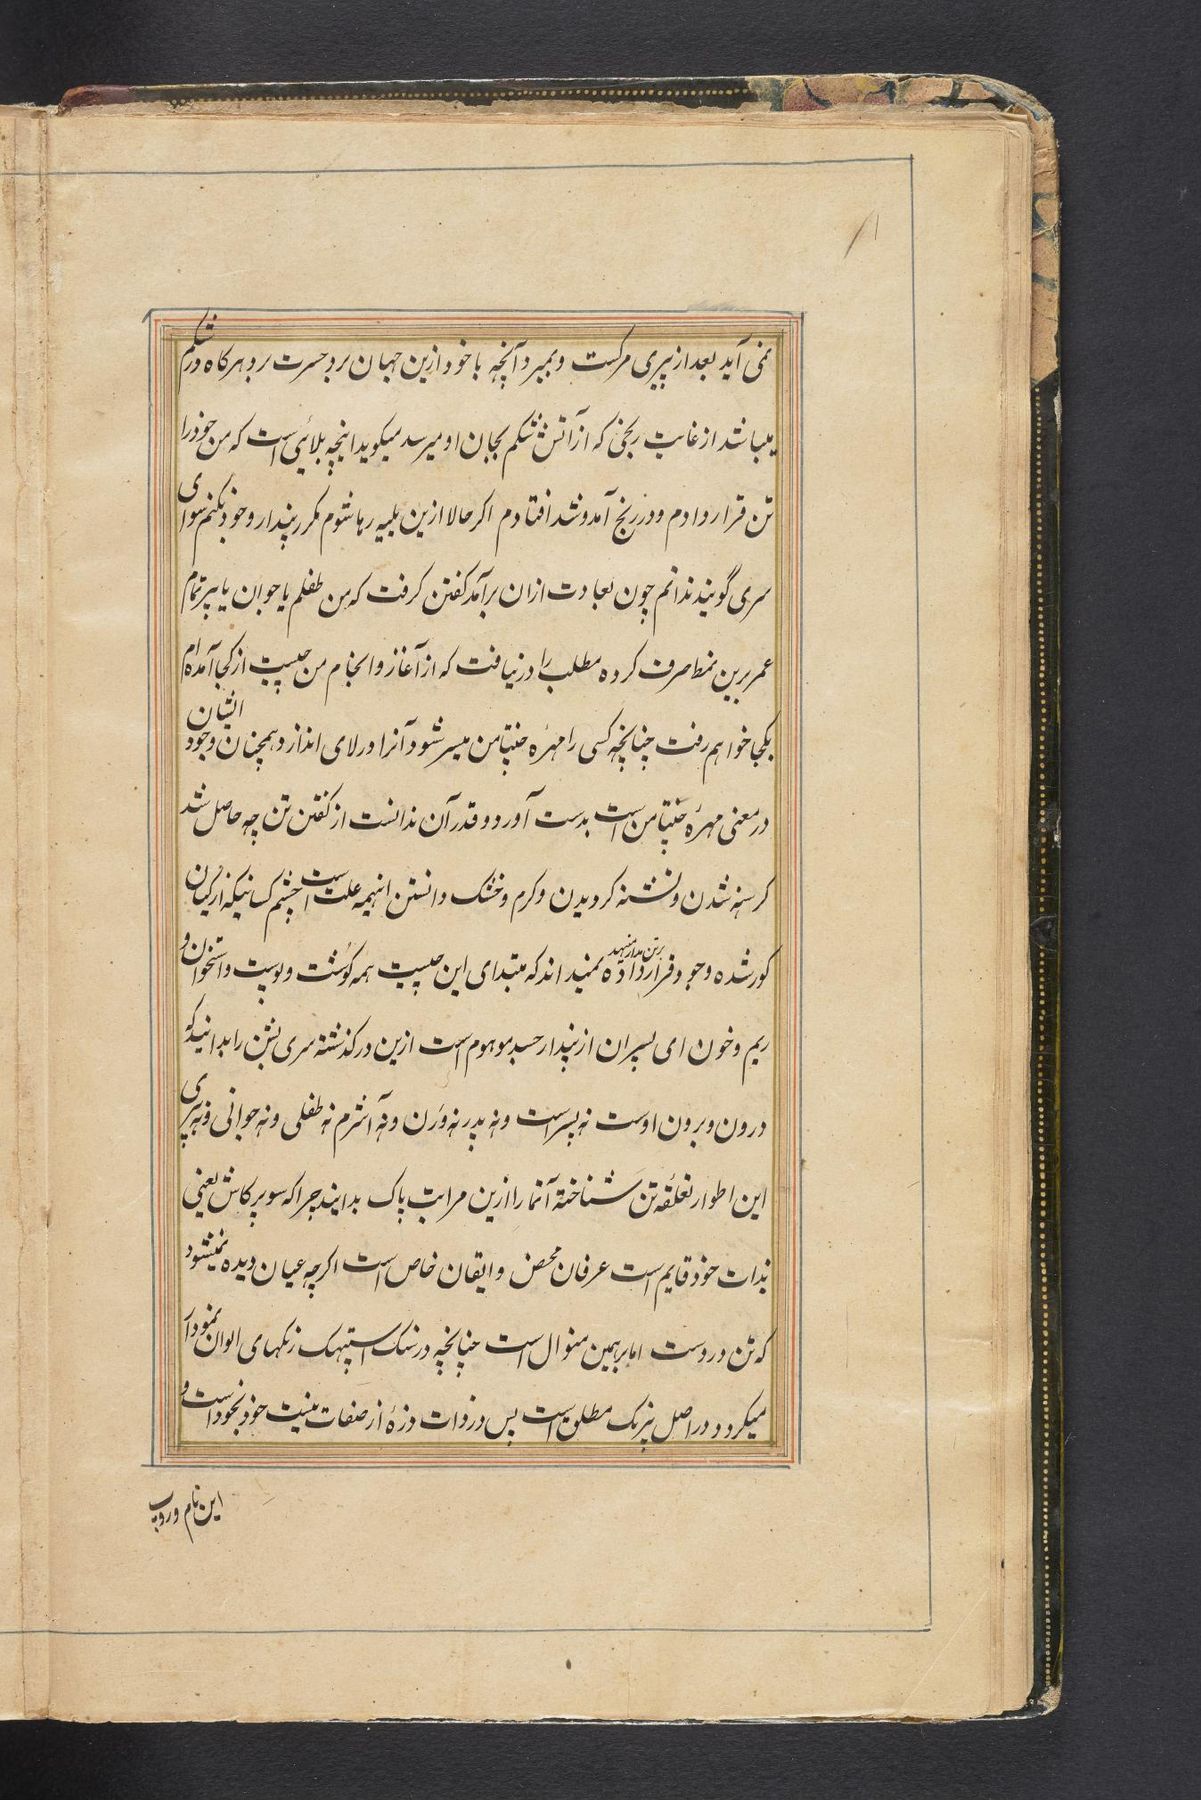 نمی آید بعد از پیری مرکست و بمیرد آنچه با خود ازین جهان برد حسرت برد هر کاه در شکم
میباشد از غایت رنجی که از آتش شکم بجان او میرسد میکوید اینچه بلائی است که من خود را
تن قرار دادم و در رنج آمد و شد افتادم اکر حالا ازین بلیه رها شوم مکرر پندار وجود نکنم سوای
سری گویند ندانم چون بعادت ازان برآمد کفتن کرفت که من طفلم یا جوان یا پیر تمام
عمر برین نمط صرف کرده مطلب را در نیافت که از آغاز و انجام من چیست از کجا آمده ام
بکجا خواهم رفت چنانچه کسی را مهرهٔ چنتامن میسر شود آنرا در لای اندازد همچنان وجود ایشان
در معنی مهرهٔ چنتامن است بدست آورد و قدر آن ندانست از کفتن تن چه حاصل شد
کرسنه شدن و تشنه کردیدن و کرم و خشک دانستن اینهمه علت است چشم کسانیکه از کیان
کور شده وجود قرار داده برتن مدار مینهد نمیداند که مبتدای این چیست همه کوشت و پوست و استخوان و
ریم و خون ای پسران از پندار جسد موهوم است ازین در کذشته سری بشن را بدانید که
درون و برون اوست نه پسر است و نه پدر نه و زن و نه آشرم نه طفلی و نه جوانی و نه پیری
این اطوار تعلقه تن شناخته آتما را ازین مراتب پاک بدانید چرا که سوپرکاش یعنی
بذات خود قایم است عرفان محض و ایقان خاص است اکرچه عیان دیده نمیشود
که تن در وست اما برهمین منوال است چنانچه در سنک استپهک رنکهای الوان نمودار
میکردد در اصل بیرنک مطلق است پس در ذات ذرهٔ از صفات نیست خود بخود است و
این نام و روپ